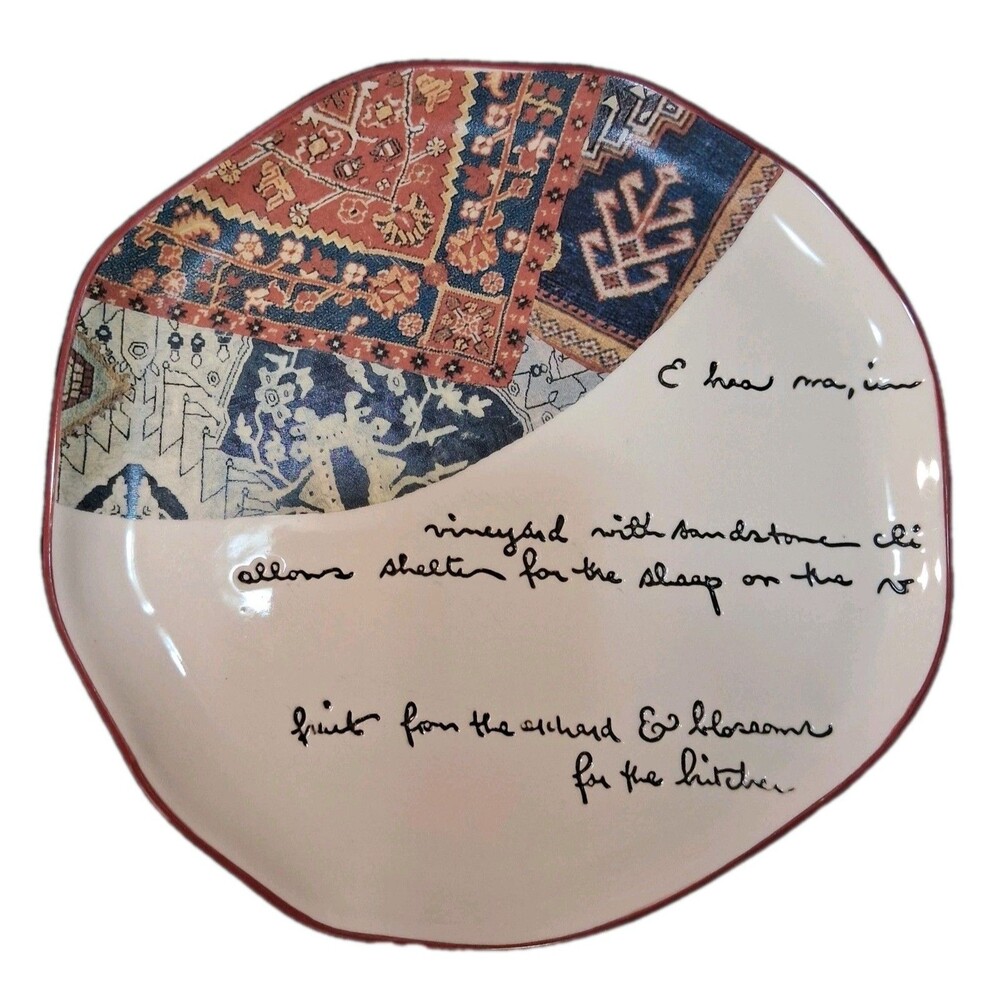 vineyard with sandstone cli
allows shelter for the sheep on the v
fruit from the orchard & blossoms
for the kitchen